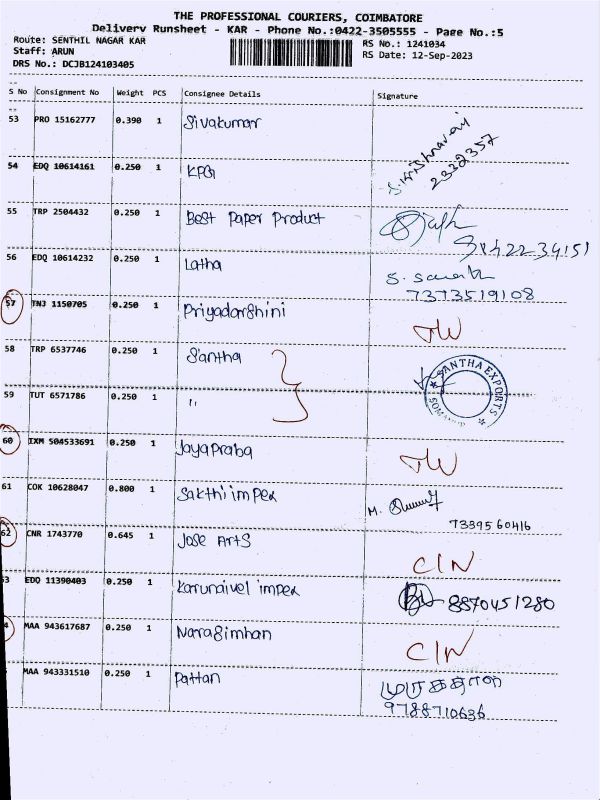 THE PROFESSIONAL COURIERS, COIMBATORE
Delivery Runsheet - KAR - Phone No.:0422-3505555 - Page No.:5
Route: SENTHIL NAGAR KAR
RS No.: 1241034
Staff: ARUN
RS Date: 12-Sep-2023
DRS No.: DCJB124103405
S No Consignment No Weight PCS Consignee Details Signature
53 PRO 15162777 0.390 1 Sivakumar
2332357
54 EDQ 10614161 0.250 1 KPG
55 TRP 2504432 0.250 1 Best Paper Product
56 EDQ 10614232 0.250 1 Latha
7373519108
57 TNJ 1150705 0.250 1 Priyadarshini
58 TRP 6537746 0.250 1 Santha
SANTHA EXPORTS
59 TUT 6571786 0.250 1 "
60 IXM 504533691 0.250 1 Jayapraba
61 COK 10628047 0.800 1 Sakthi impex
M.
7339560416
62 CNR 1743770 0.645 1 Jose Arts
CIN
3 EDQ 11390403 0.250 1 Karunaivel impex
8870451280
4 MAA 943617687 0.250 1 Narasimhan
CIN
MAA 943331510 0.250 1 Pattan
9788710636